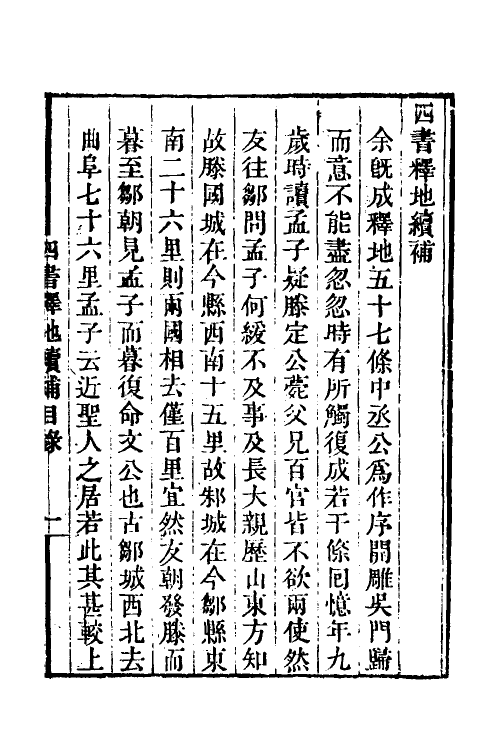 四書釋地續補
余旣成釋地五十七條中丞公爲作序開雕吳門歸
而意不能盡忽忽時有所觸復成若干條囘憶年九
歲時讀孟子疑滕定公薨父兄百官皆不欲兩使然
友往鄒問孟子何緩不及事及長大親歷山東方知
故滕國城在今縣西南十五里故邾城在今鄒縣東
南二十六里則兩國相去僅百里宜然友朝發滕而
暮至鄒朝見孟子而暮復命文公也古鄒城西北去
曲阜七十六里孟子云近聖人之居若此其甚較上
四書釋地續補目錄 一